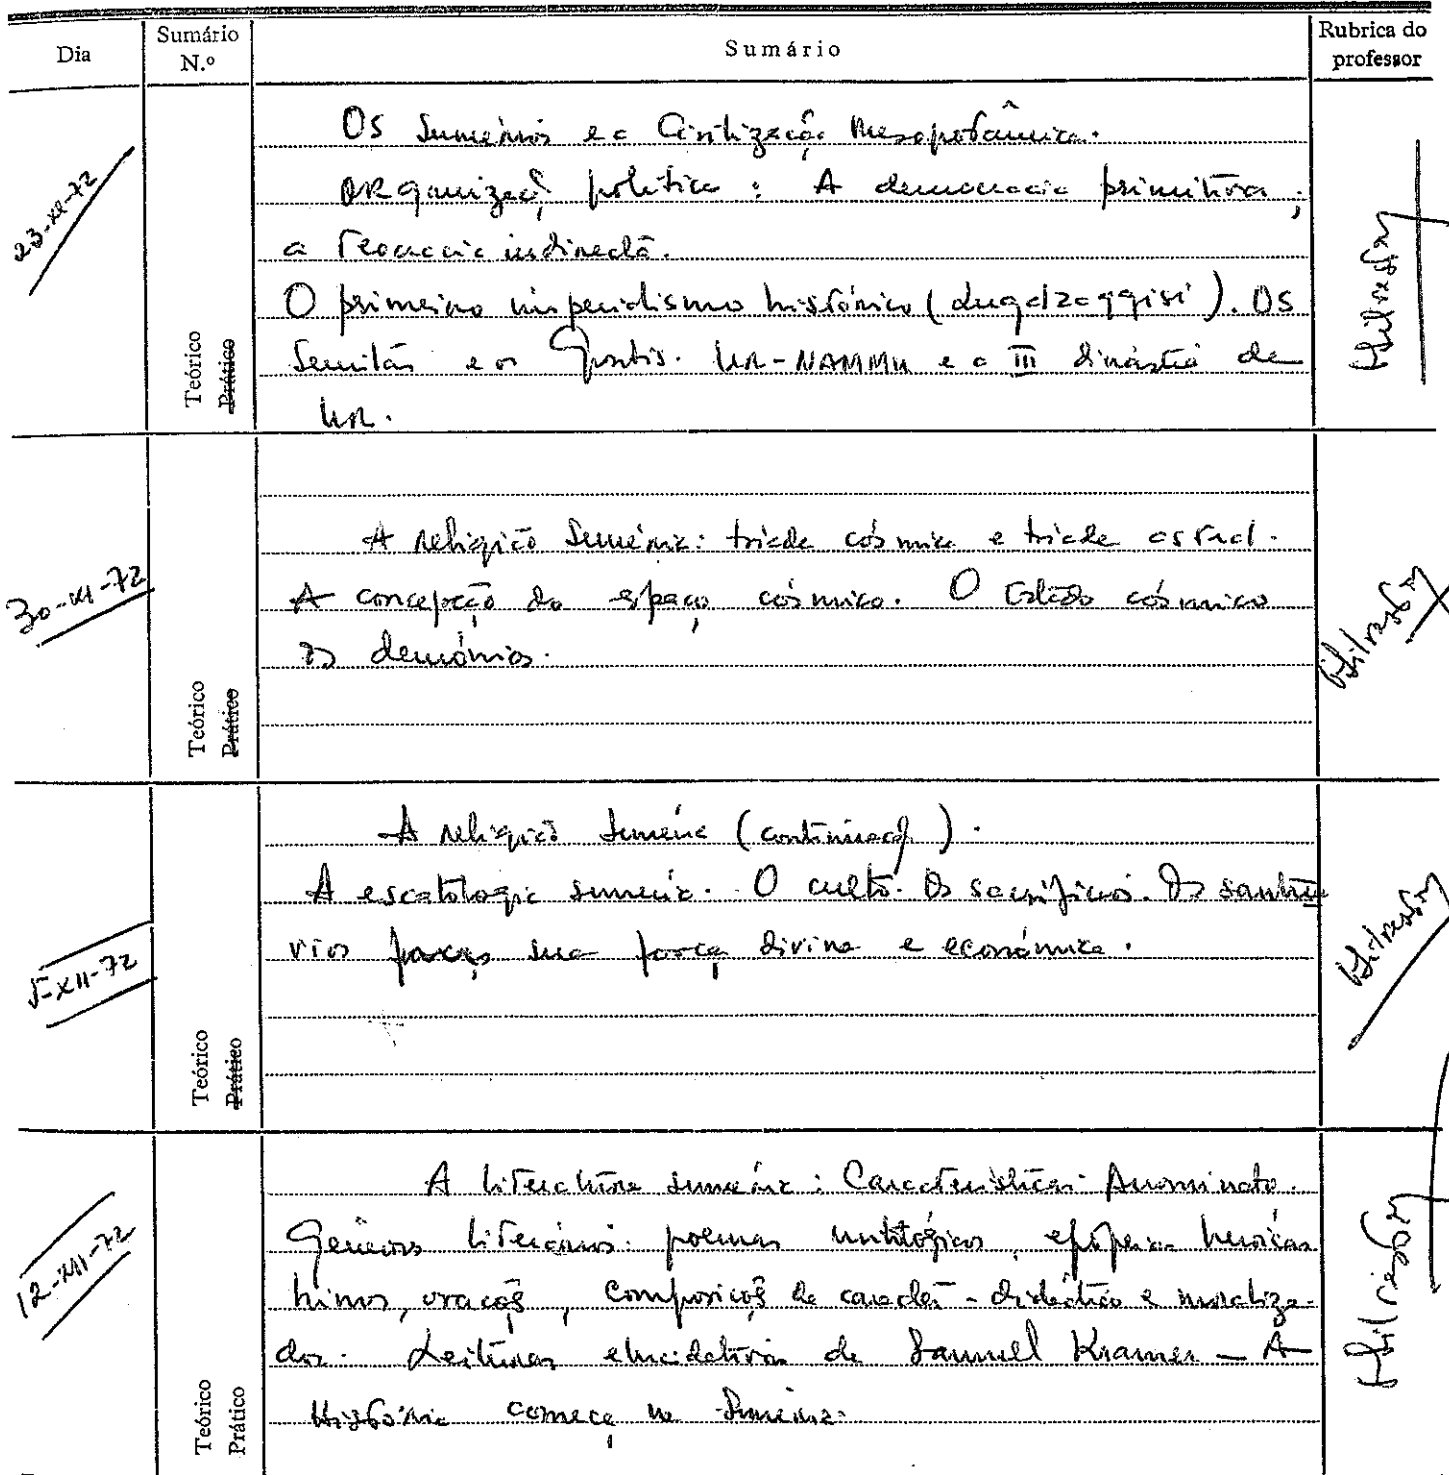 Dia Sumário N.º Sumário Rubrica do professor
Os Sumérios e a Civilização Mesopotâmica.
ORganização política: A democracia primitiva;
a Teocracia indirecta.
23-XI-72
O primeiro imperialismo histórico (Lugalzaggisi). Os
Semitas e os Gutis. UR-NAMMU e a III dinastia de
UR.
Teórico
Prático
A religião Suméria: tríade cósmica e tríade astral.
30-XI-72
A concepção do espaço cósmico. O Estado cósmico
Os demónios.
Teórico
Prático
A religião Suméria (continuação).
A escatologia suméria. O culto. Os sacrifícios. Os santuá
rios sua força divina e económica.
5-XII-72
Teórico
Prático
A literatura suméria: Características: Anominato.
12-XII-72
Géneros literários: poemas mitológicos, epopeias heróicas
hinos, orações, Composições de carácter - didáctico e moraliza-
dor. Leituras elucidativas de Samuel Kramer — A
História começa na Suméria.
Teórico
Prático